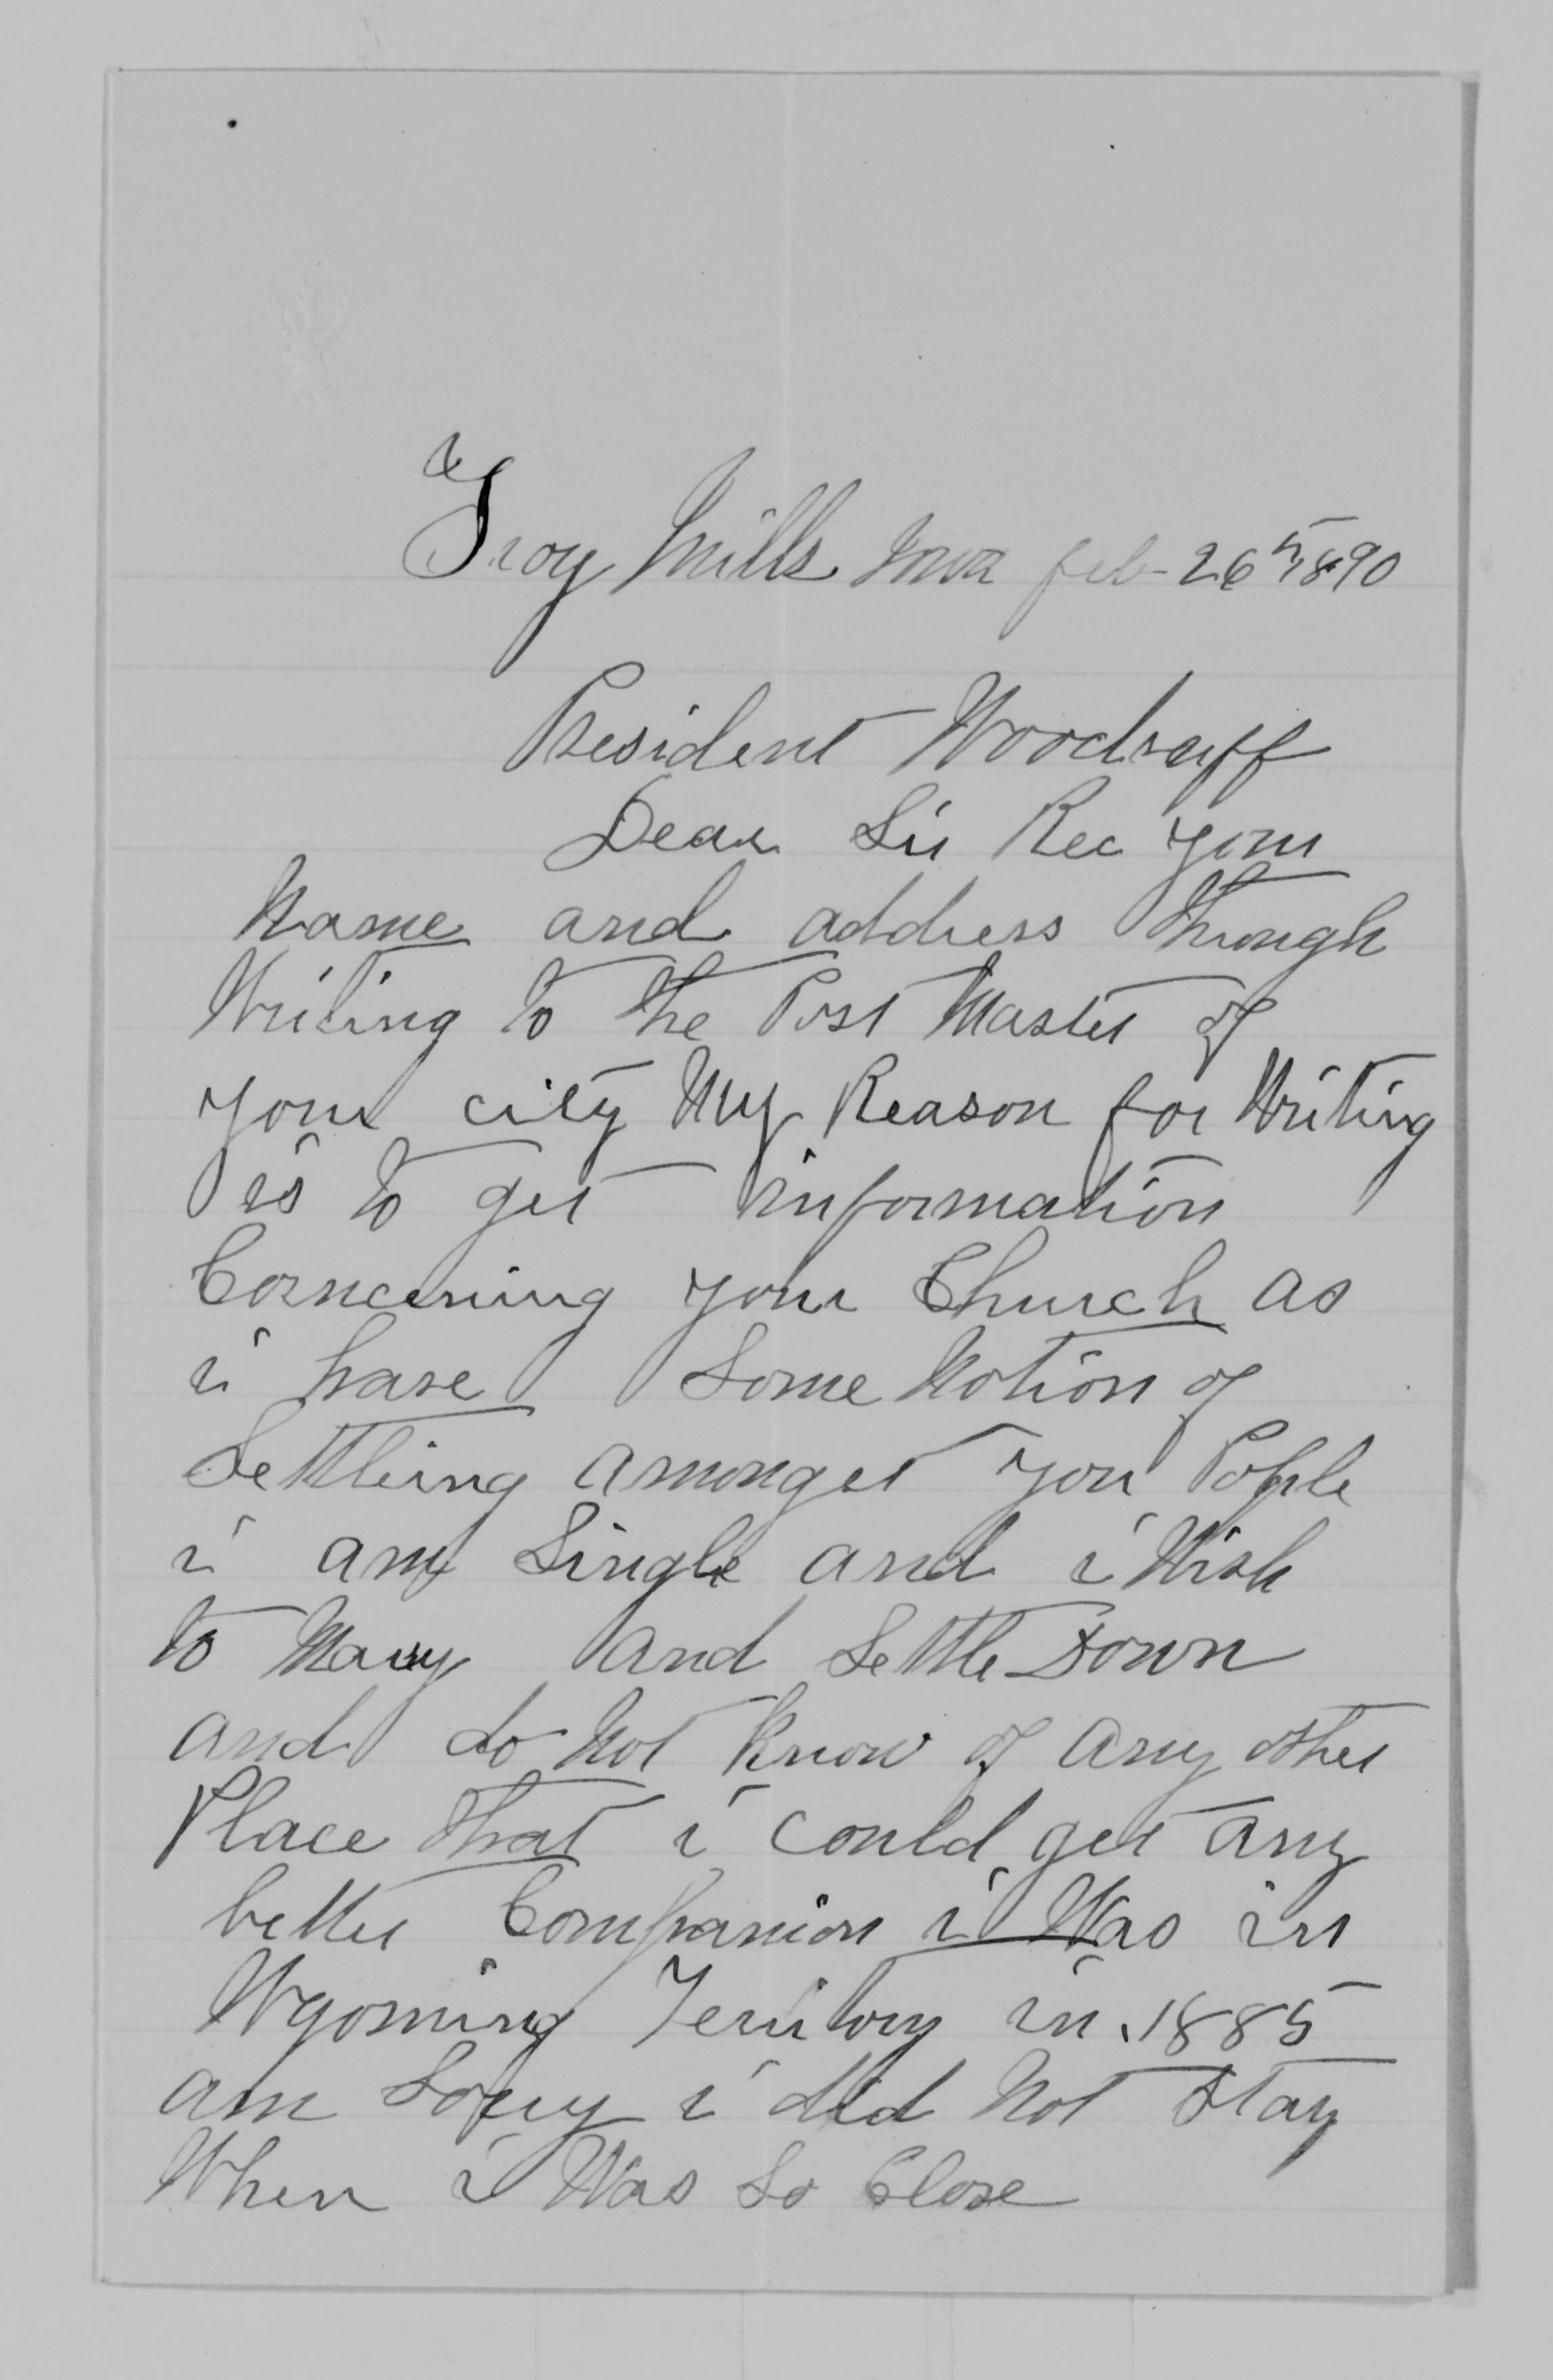 Troy Mills Iowa feb 26th 1890
President Woodruff
Dear Sir Rec your
Name and address through
Writing to the Post Master of
your city My Reason for Writing
is to get information
Concerning your Church as
i have Some Notion of
Settleing amongst you Pople
i am Single and i Wish
to Marry and Settle Down
and do Not Know of any other
Place that i could get any
better Companion i Was in
Wyoming Teritory in 1885
am Sorry i did Not Stay
When i Was So Close